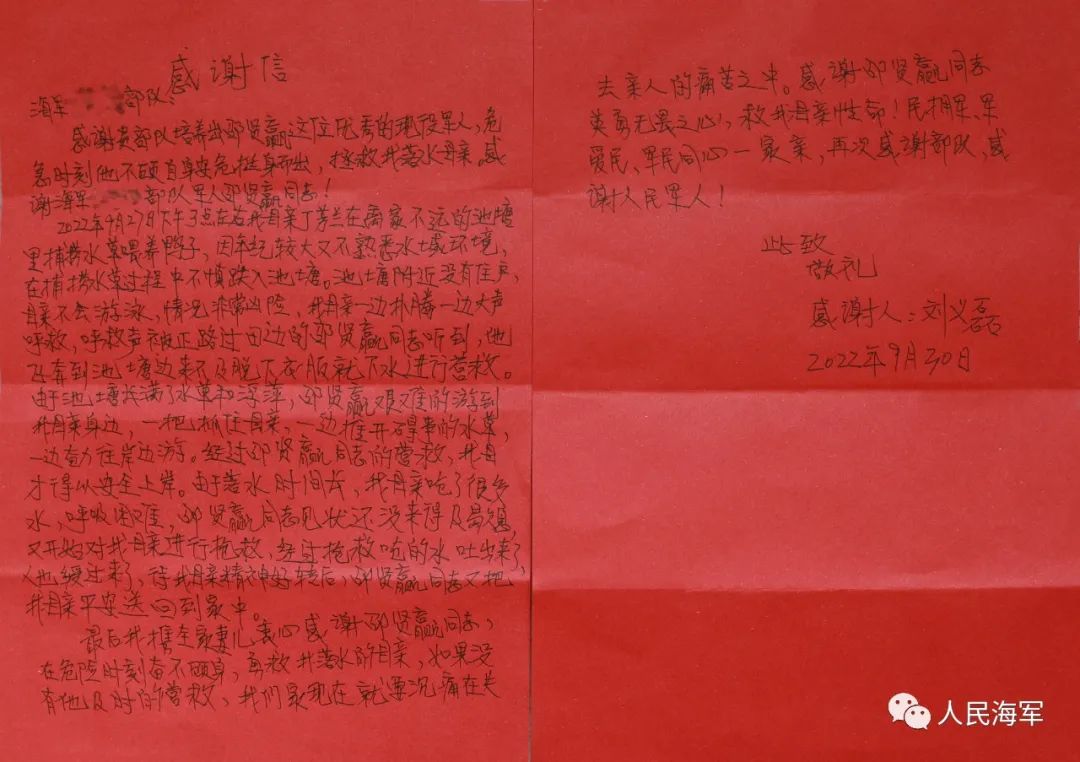 感谢信
海军 部队:
感谢贵部队培养出邵贤赢这位优秀的现役军人,危
急时刻他不顾自身安危挺身而出,拯救我落水母亲,感
谢海军 部队军人邵贤赢同志!
2022年9月27日下午3点左右我母亲丁芳兰在离家不远的池塘
里捕捞水草喂养鸭子,因年纪较大又不熟悉水域环境,
在捕捞水草过程中不慎跌入池塘。池塘附近没有住户,
母亲不会游泳,情况非常凶险,我母亲一边扑腾一边大声
呼救,呼救声被正路过田边的邵贤赢同志听到,他
飞奔到池塘边来不及脱下衣服就下水进行营救。
由于池塘长满了水草和浮萍,邵贤赢艰难的游到
我母亲身边,一把抓住母亲,一边推开碍事的水草,
一边奋力往岸边游。经过邵贤赢同志的营救,我母
才得以安全上岸。由于落水时间长,我母亲呛了很多
水,呼吸困难,邵贤赢同志见状还没来得及喘息,
又开始对我母亲进行抢救,经过抢救呛的水吐出来了,
人也缓过来了,待我母亲精神好转后,邵贤赢同志又把
我母亲平安送回到家中。
最后我携全家妻儿衷心感谢邵贤赢同志,
在危险时刻奋不顾身,勇救我落水的母亲,如果没
有他及时的营救,我们家现在就要沉痛在失
去亲人的痛苦之中。感谢邵贤赢同志
英勇无畏之心,救我母亲性命!民拥军、军
爱民、军民同心一家亲,再次感谢部队,感
谢人民军人!
此致
敬礼
感谢人:刘义磊
2022年9月30日
人民海军